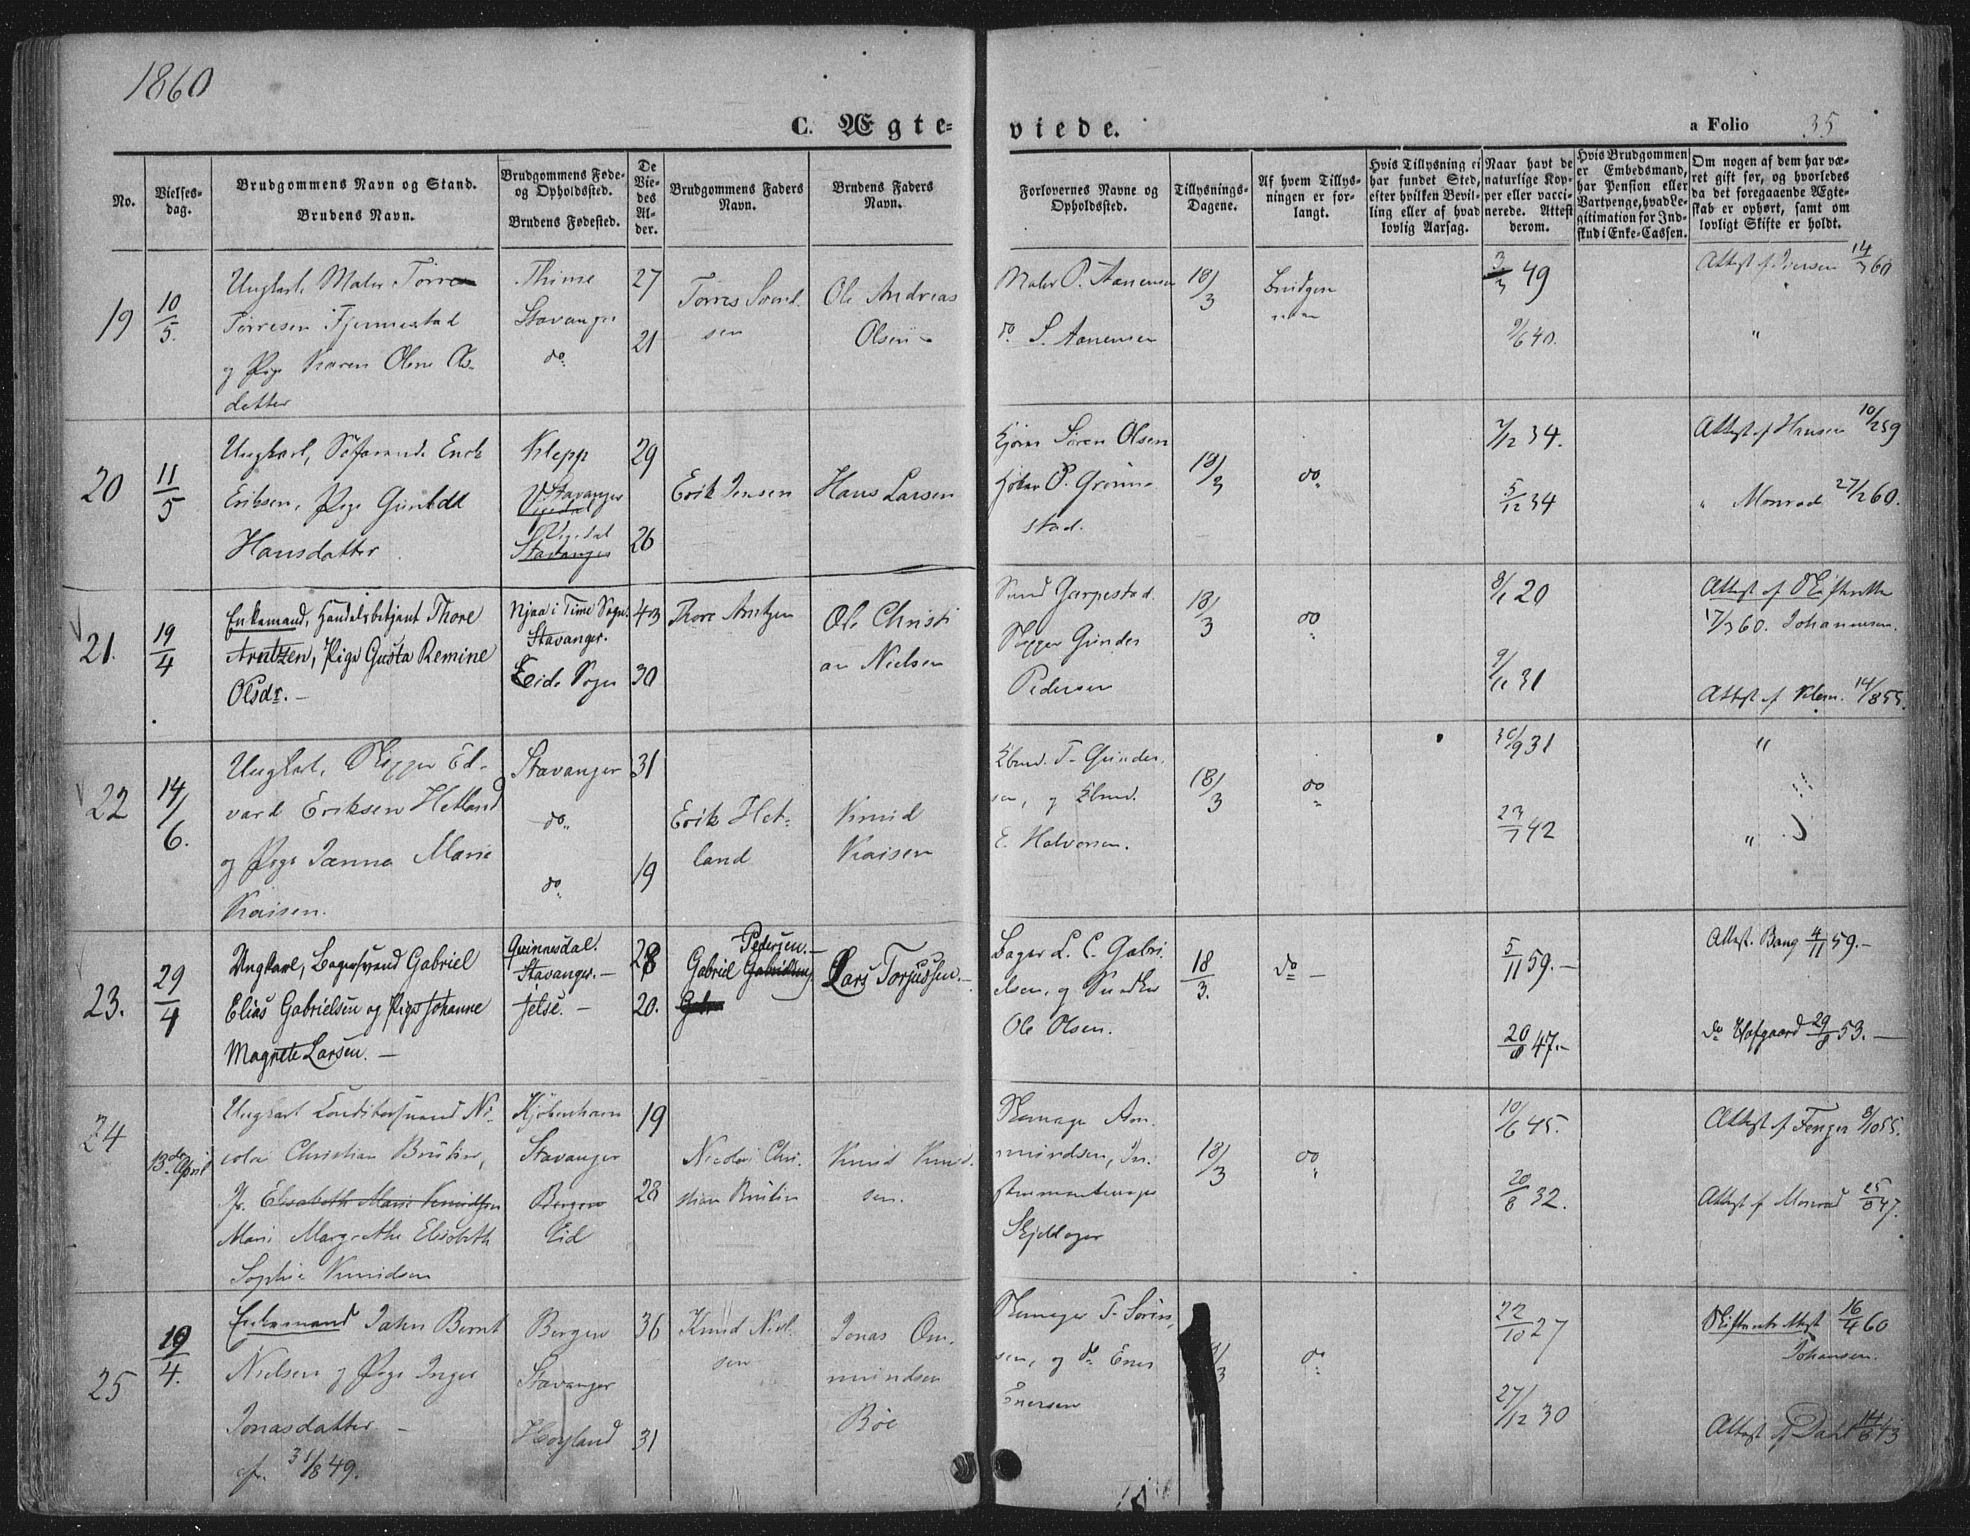 1860
C. Ægte-
viede.
a Folio 35
No.
Vielses-
dag.
Brudgommens Navn og Stand.
Brudens Navn.
Brudgommens Føde-
og Opholdssted.
Brudens Fødested.
De
Vie-
des
Al-
der.
Brudgommens Faders
Navn.
Brudens Faders
Navn.
Forlovernes Navne og
Opholdssted.
Tillysnings-
Dagene.
Af hvem Tillys-
ningen er for-
langt.
Hvis Tillysning ei
har fundet Sted,
efter hvilken Bevil-
ling eller af hvad
lovlig Aarsag.
Naar havt de
naturlige Kop-
per eller vacci-
nerede. Attest
derom.
Hvis Brudgommen
er Embedsmand,
har Pension eller
Vartpenge, hvad Le-
gitimation for Ind-
skud i Enke-Cassen.
Om nogen af dem har væ-
ret gift før, og hvorledes
da det foregaaende Ægte-
skab er ophørt, samt om
lovligt Skifte er holdt.
19
10/5.
Ungkarl, Maler Torre
Torresen Fjermestad
og Pige Karen Olene Os-
datter
Thime
Stavanger
do.
27
21
Torres Svend
sen
Ole Andreas
Olsen
Maler P. Aanensen
do S. Aanensen
18/3
Brudgom
men
3/3 49
9/6 40.
Attest af Iversen 14/3 60
"
20
11/5
Ungkarl, Søfarende Erik
Eriksen, Pige Gunild
Hansdatter
Klepp
Stavanger
Vigedal
Stavanger
29
26
Erik Jensen
Hans Larsen
Søren Olsen
P. Grønne
stad.
18/3
do
7/12 34.
5/12 34
Attest af Hansen 10/2 59
" Monrad 27/2 60.
21.
19/4
Enkemand, Handelsbetjent Thore
Arntzen, Pige Gusta Remine
Olsdr. -
Njaa i Time Sogn.
Stavanger.
Eide Sogn
43
30
Thore Arntzen
Ole Christi
an Nielsen
Garpestad.
Skipper Gunder
Pedersen
18/3
do
8/1 20
9/11 31
Attest af Skifteretten
17/3 60. Johannesen.
Attest af 14/8 55.
22
14/6.
Ungkarl, Skipper Ed-
vard Eriksen Hetland
og Pige Janna Marie
Knisen.
Stavanger
do.
do.
31
19
Erik Het-
land
Knud
Knisen
T. Gunder-
sen, og
E. Halvorsen.
18/3
do
30/9 31
23/7 42
"
"
23.
29/4
Ungkarl, Bagersvend Gabriel
Elias Gabrielsen og Pige Johanne
Magrete Larsen. -
Qvinnesdal.
Stavanger. -
Jelse. -
28
20.
Pedersen. -
Gabriel Gabrielsen
Lars Torjussen. -
Bager L. C. Gabri-
elsen, og
Ole Olsen.
18/3.
do -
5/11 59. -
20/8 47. -
Attest. Bang 4/11 59. -
do Hofgaard 29/8 53. -
24
13de April
Ungkarl Konditorsvend Ni-
colai Christian Bruun,
Jr. Elisabeth Marie Knudsen
Marie Margrethe Elisabeth
Sophie Knudsen
Kjøbenhavn
Stavanger
Bergen
Eid
19
28
Nicolai Chri-
stian Bruun
Knud Knud-
sen.
Skomager Am-
mundsen, In-
strumentmager
Skjeldager
18/3
do
10/6 45.
20/8 32.
Attest af Fenger 8/10 55.
Attest af Monrad 25/8 47.
25
19/4.
Enkemand Jahn Bernt
Nielsen og Pige Inger
Jonasdatter -
cf. 31/8 49.
Bergen
Stavanger
Høyland
36
31
Knud Niel-
sen
Jonas Om-
mundsen
Bøe
Skomager T. Søren-
sen, og do Ener
Enersen
do
22/10 27
27/12 30
Skifterets Attest 16/4 60
Johansen.
Attest af Dahl 14/6 43